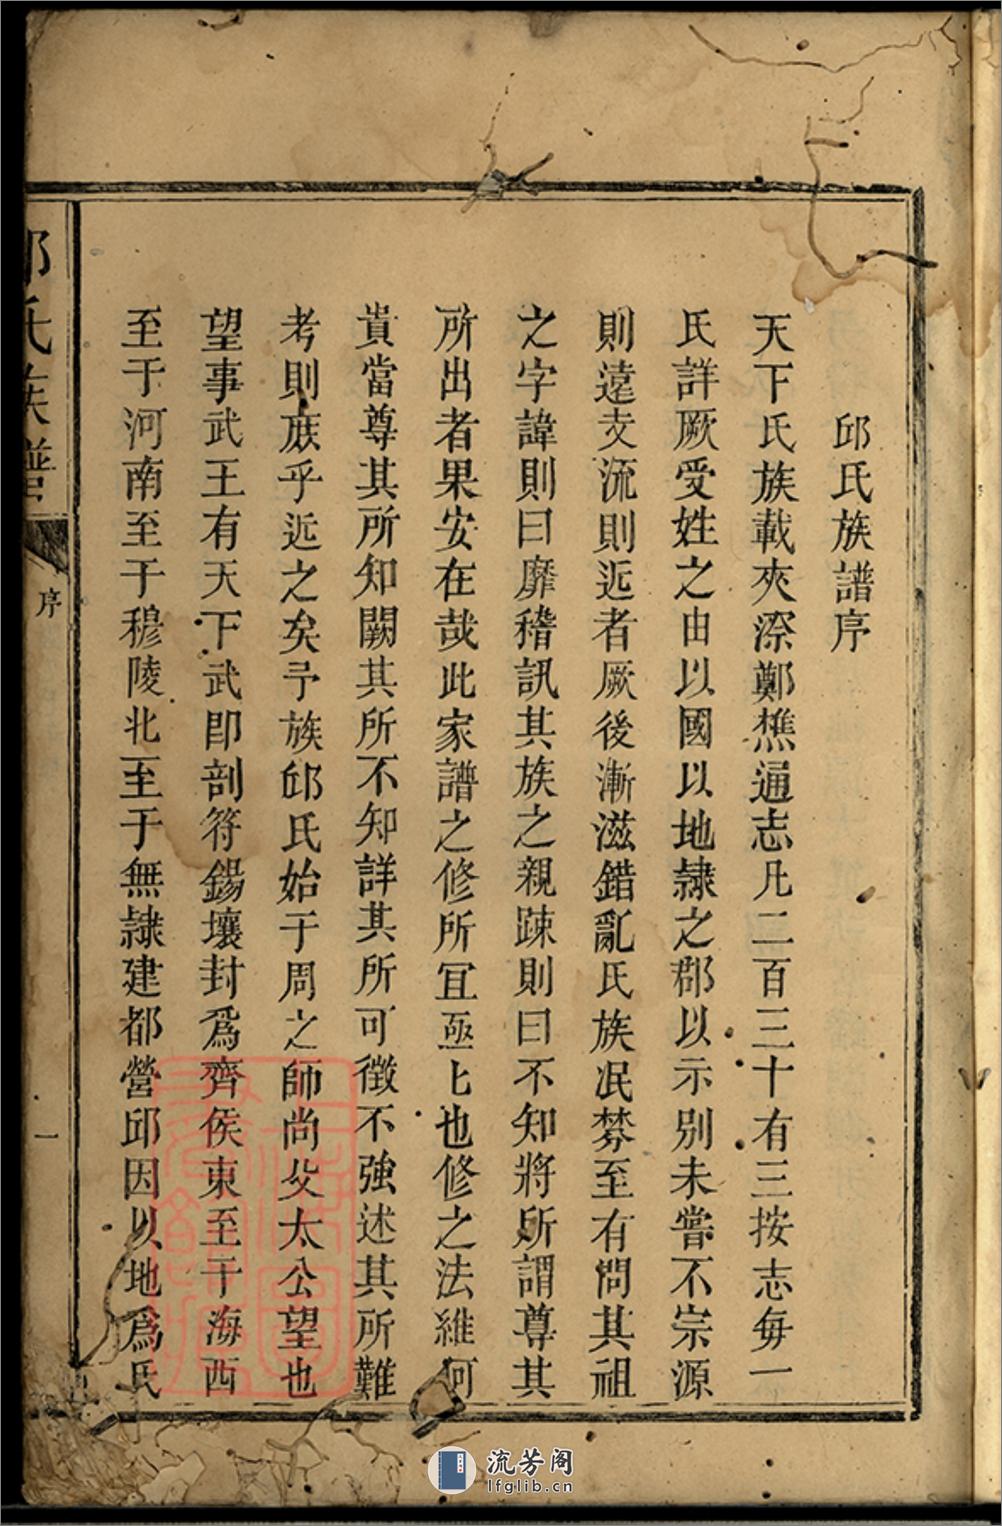 邱氏族譜序
天下氏族載夾漈鄭樵通志凡二百三十有三按志毎一
氏詳厥受姓之由以國以地隸之郡以示別未嘗不宗源
則遠支流則近者厥後漸滋錯亂氏族泯棼至有問其祖
之字諱則曰靡稽訊其族之親踈則曰不知將所謂尊其
所出者果安在哉此家譜之修所冝亟亟也修之法維何
貴當尊其所知闕其所不知詳其所可徵不強述其所難
考則庶乎近之矣予族邱氏始于周之師尚父太公望也
望事武王有天下武即剖符錫壤封爲齊侯東至于海西
至于河南至于穆陵北至于無隸建都營邱因以地爲氏
邱氏族譜
序
一
流芳阁
lfglib.cn